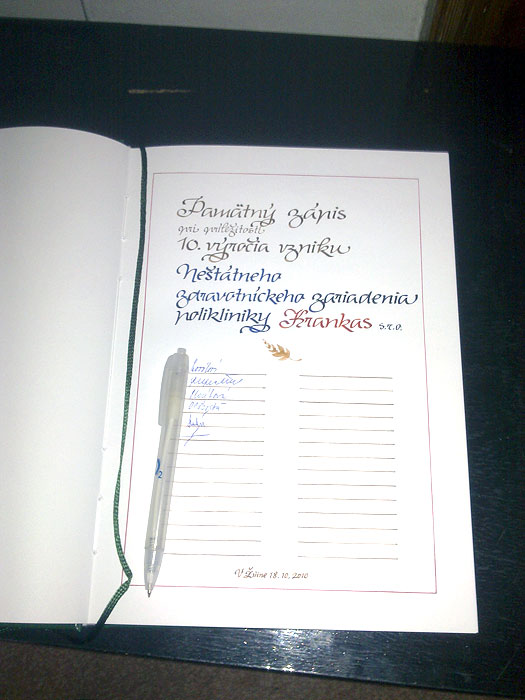 Pamätný zápis
pri príležitosti
10. výročia vzniku
Neštátneho
zdravotníckeho zariadenia
polikliniky Krankas s.r.o.
O2
V Žiline 18.10.2010